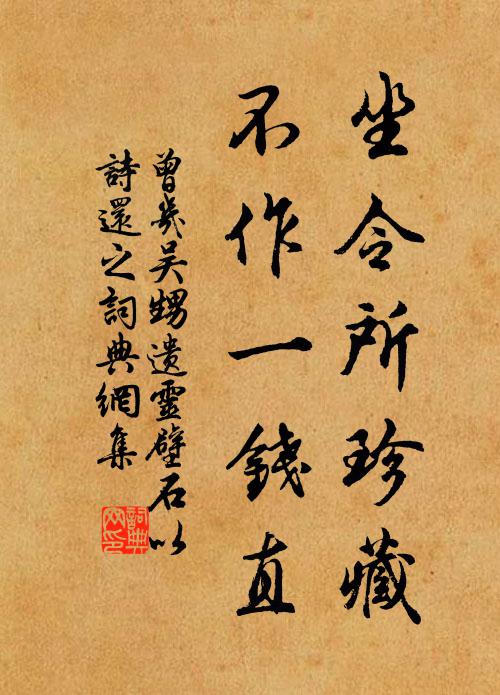 坐令所珍藏
不作一錢直
曾幾吴甥遺靈壁石以
詩還之詞典網集